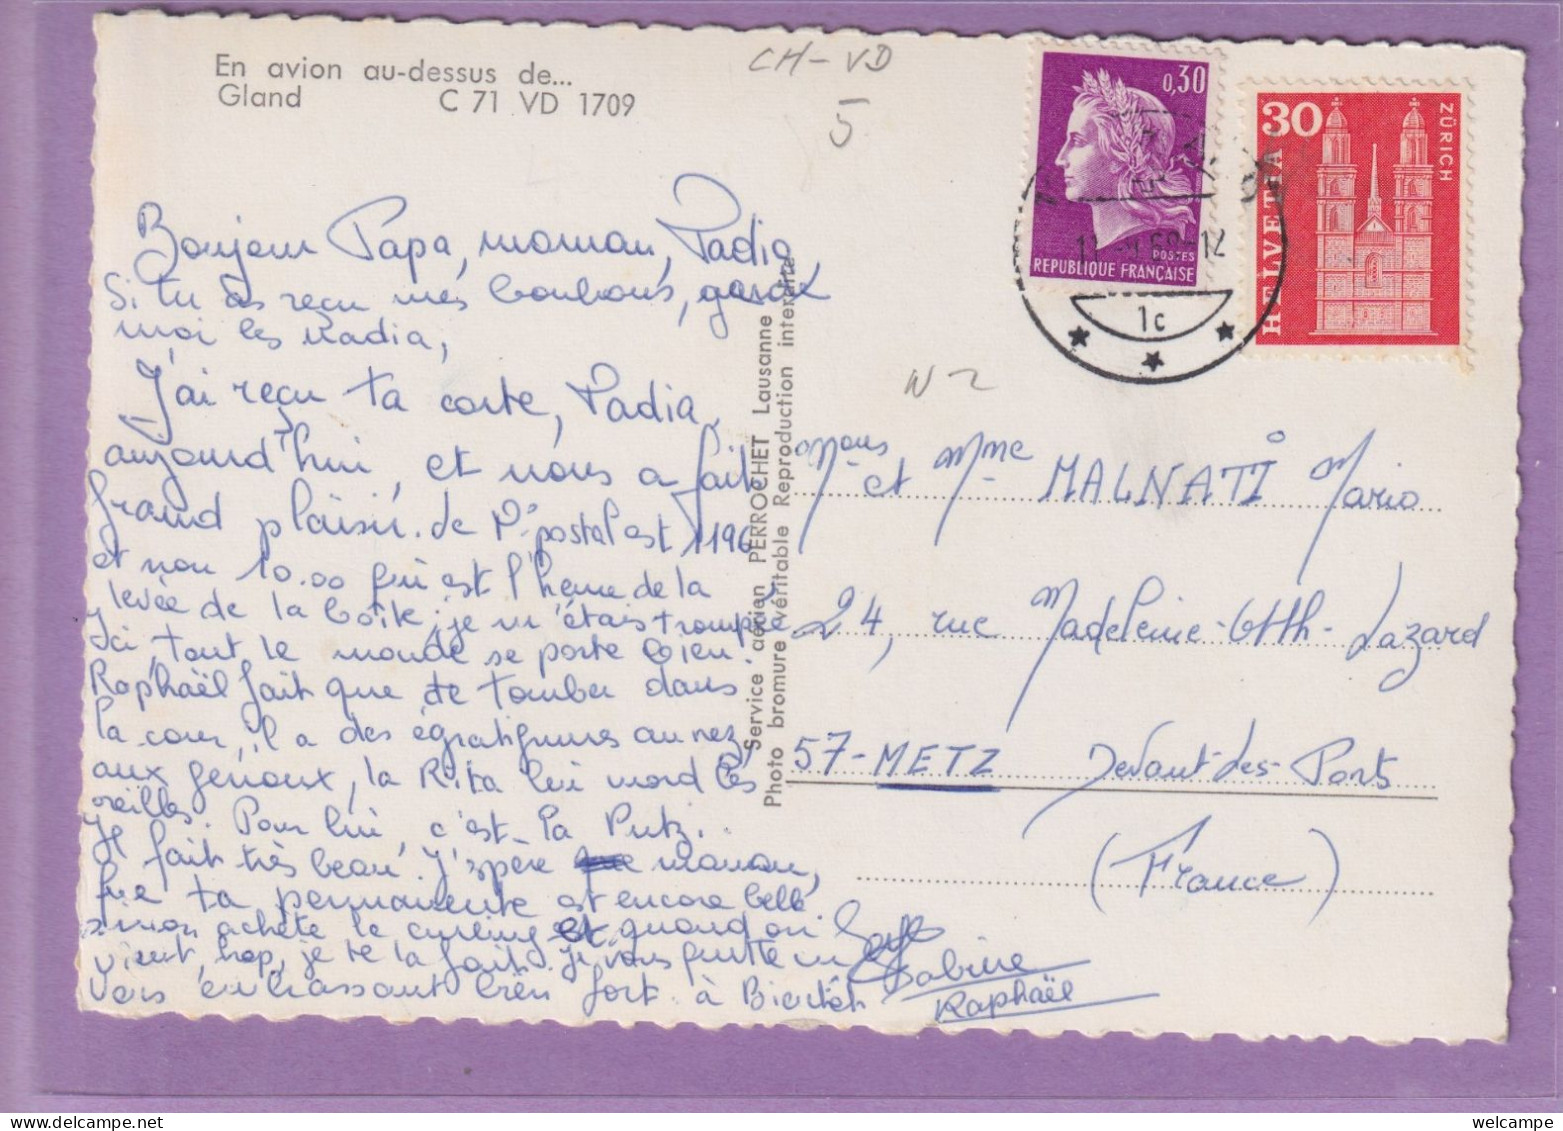 En avion au-dessus de...
Gland C 71 VD 1709
CH-VD
5
Bonjour Papa, maman, Nadia,
Si tu as reçu mes bonbons, garde
moi les Nadia,
J'ai reçu ta carte, Nadia,
aujourd'hui, et nous a fait
grand plaisir. Le N° postal est 1196
et non 10.00 qui est l'heure de la
levée de la boîte, je m'étais trompée
Ici, tout le monde se porte bien.
Raphaël fait que de tomber dans
la cour, il a des égratignures au nez,
aux genoux, la Rita lui mord les
oreilles. Pour lui, c'est la Putz.
Il fait très beau. J'espère maman,
que ta permanente est encore belle
sinon achète le curling et quand on
vient, hop, je te la fait. Je vous quitte en
vous embrassant bien fort. à Bientôt
Sabine
Raphaël
Service aérien PERROCHET Lausanne
Photo bromure véritable Reproduction interdite
0,30
POSTES
REPUBLIQUE FRANÇAISE
30
HELVETIA
ZÜRICH
1c
et Mme MALNATI Mario
24, rue Madeleine - Lazard
57-METZ Devant-des-Ponts
(France)
welcampe